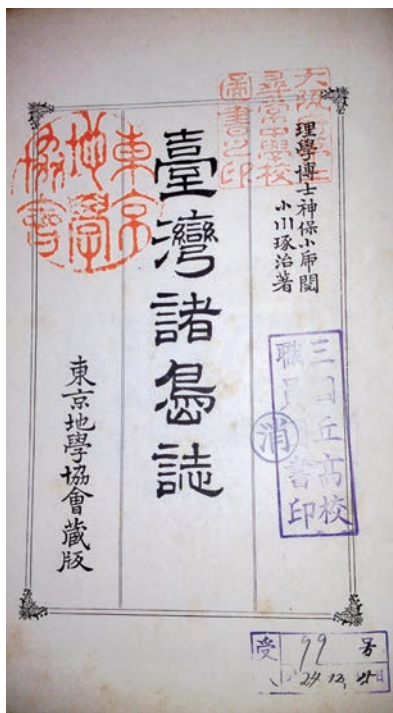 大阪府
尋常中學校
圖書之印
理學博士神保小虎閱
小川琢治著
臺灣諸島誌
東京
地學
協會
東京地學協會藏版
三国丘高校
職員
書印
消
受 99 号
24 12,